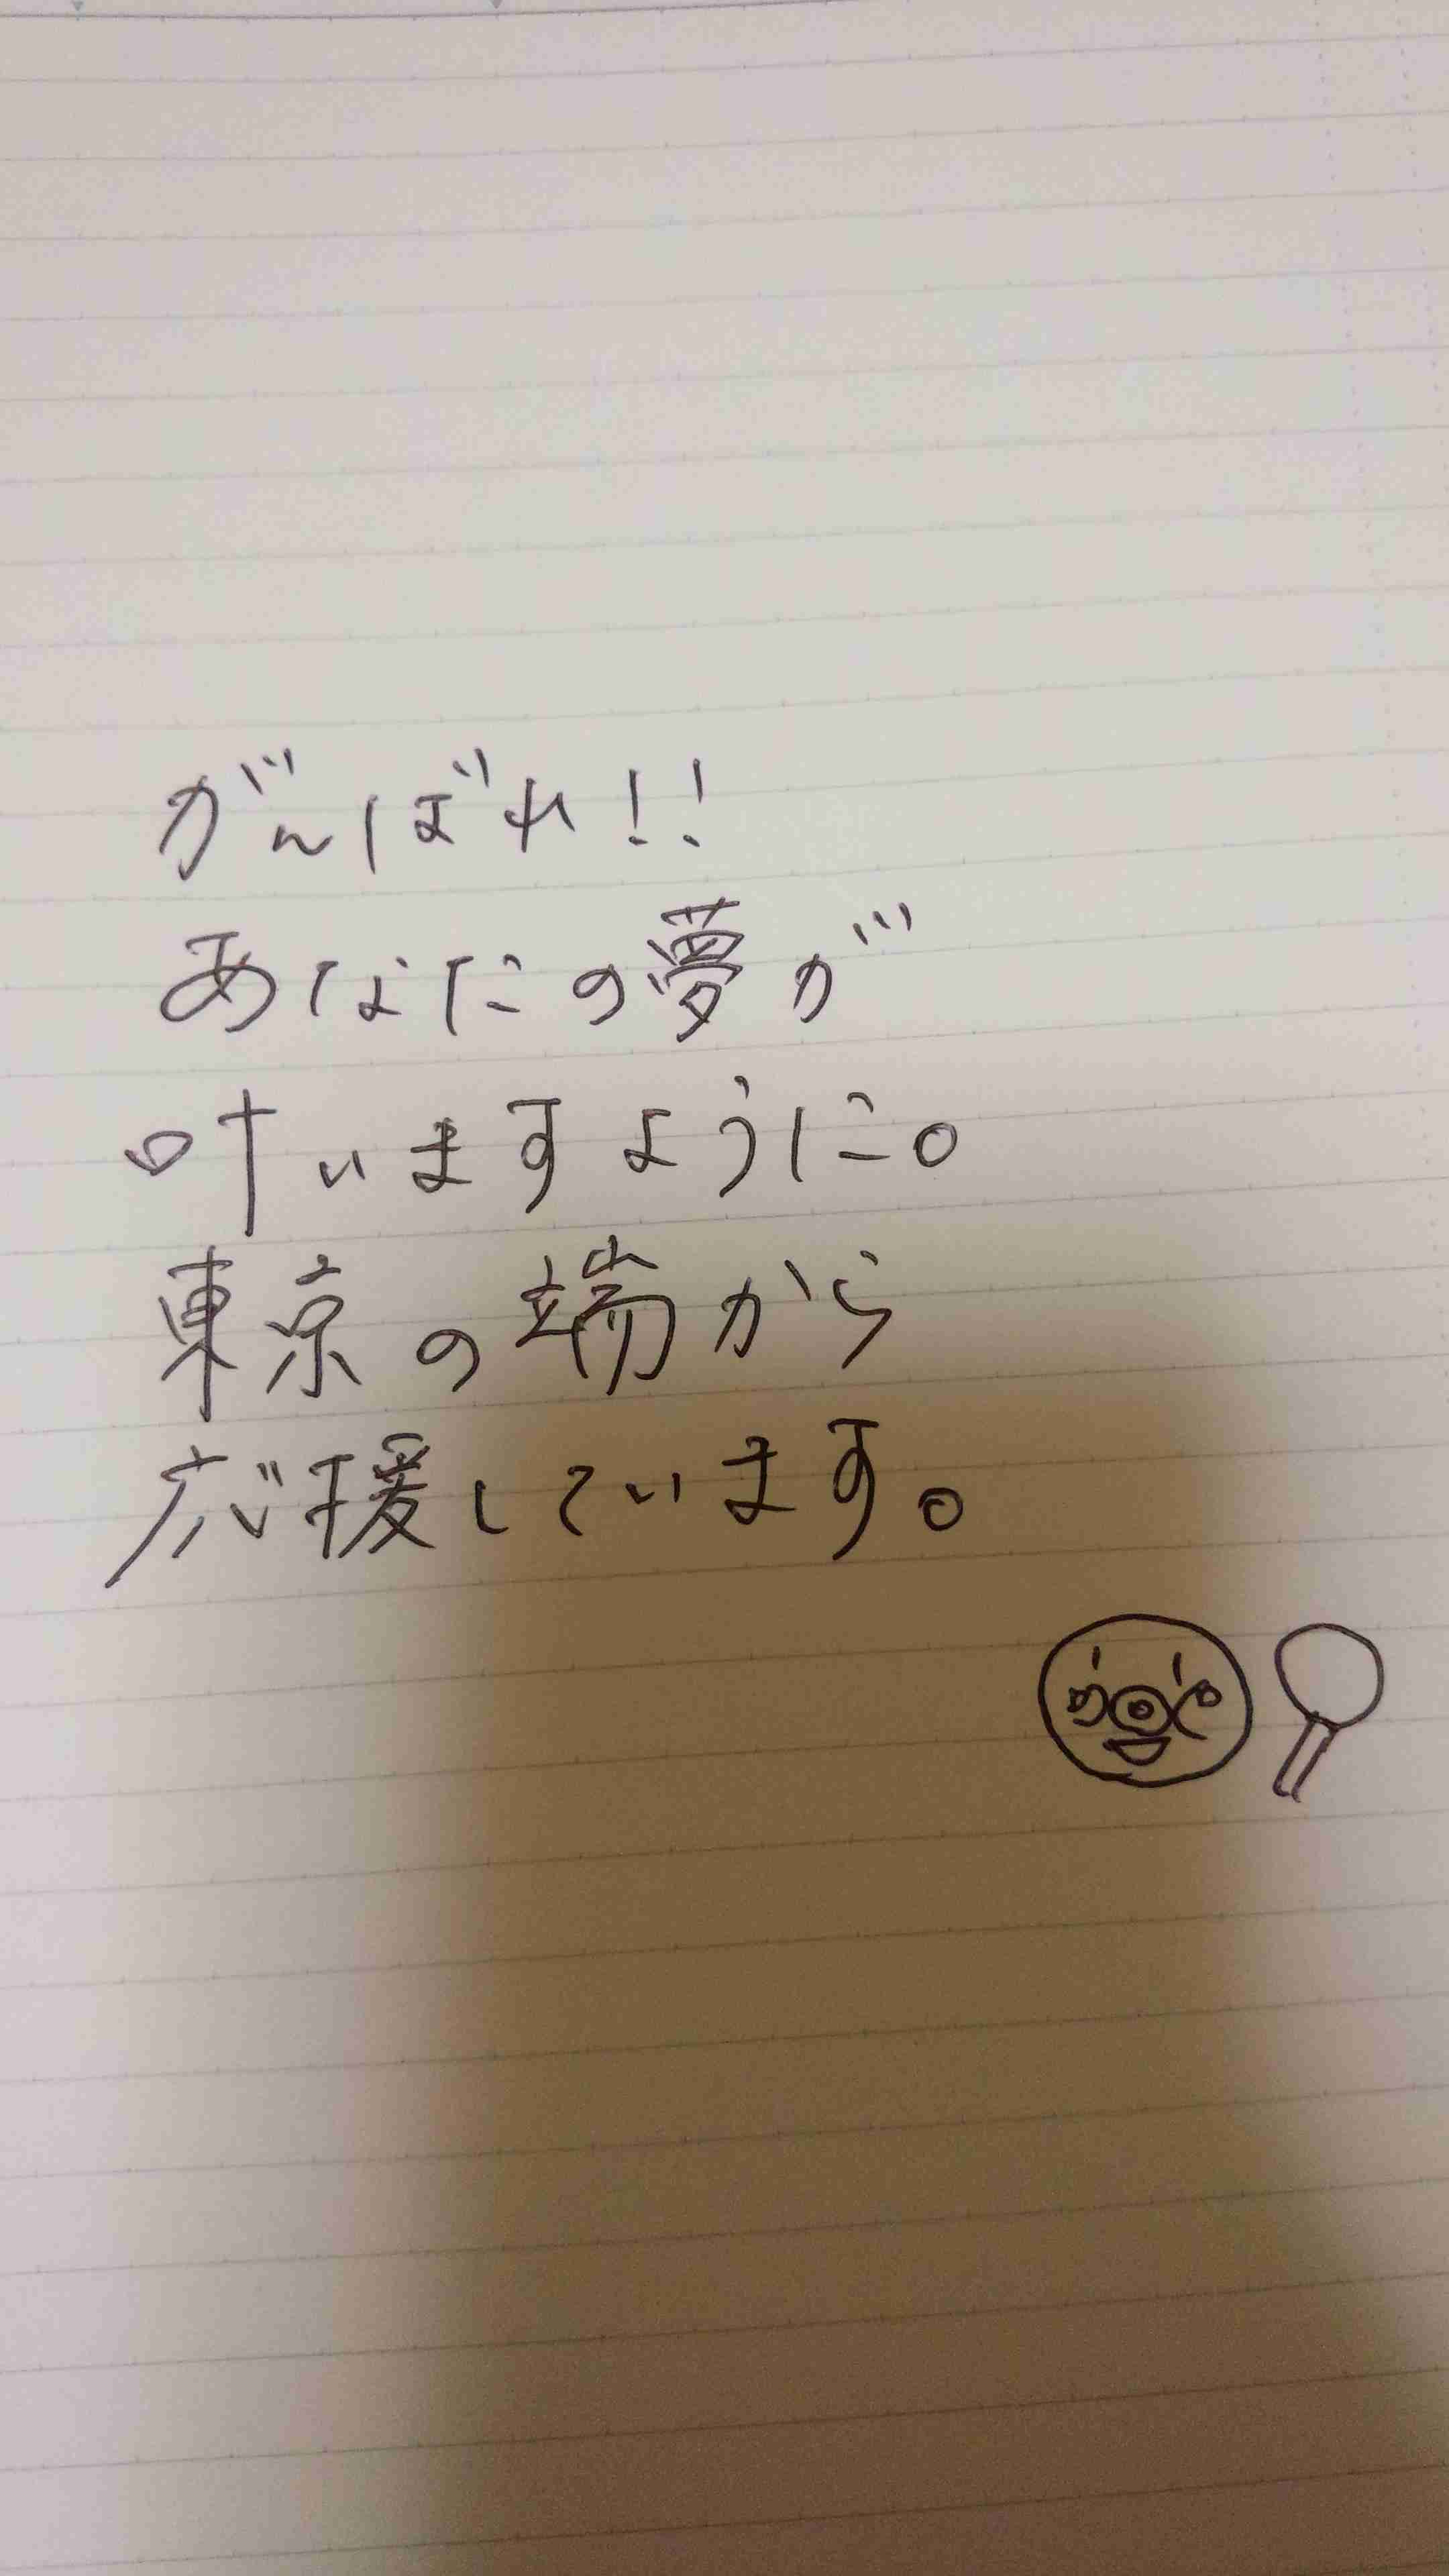 がんばれ!!
あなたの夢が
叶いますように。
東京の端から
応援しています。